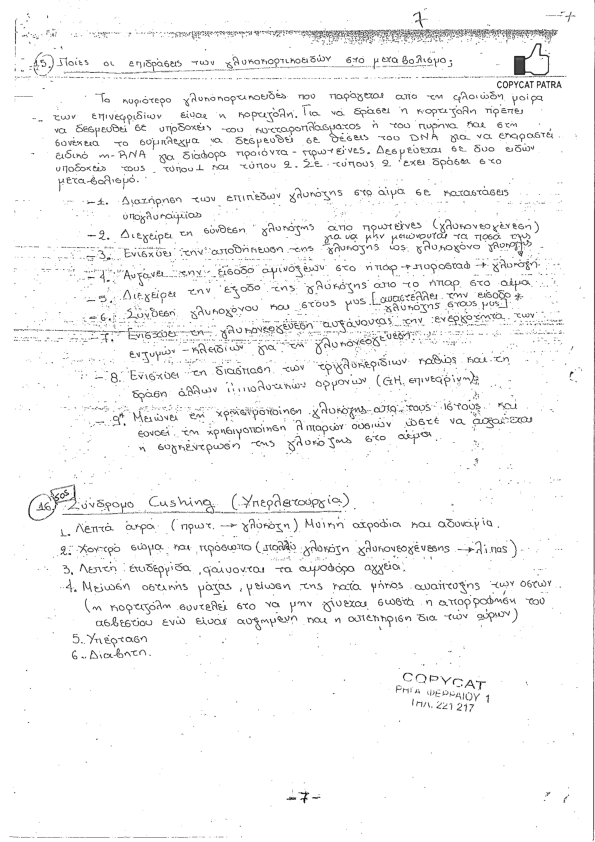 7
15. Ποιες οι επιδράσεις των γλυκοκορτικοειδών στο μεταβολισμο;
COPYCAT PATRA
Το κυριότερο γλυκοκορτικοειδές που παράγεται απο τη φλοιώδη μοίρα
των επινεφριδίων είναι η κορτιζόλη. Για να δράσει η κορτιζόλη πρέπει
να δεσμευθεί σε υποδοχείς του κυτταροπλάσματος ή του πυρήνα και στη
συνέχεια το σύμπλεγμα να δεσμευθεί σε θέσεις του DNA για να εκφραστεί
ειδικό m-RNA για διάφορα προϊόντα - πρωτεΐνες. Δεσμεύεται σε δυο ειδών
υποδοχείς τους τύπου 1 και τύπου 2. Σε τύπους 2 έχει δράσει στο
μεταβολισμό.
-1. Διατήρηση των επιπέδων γλυκόζης στο αίμα σε καταστάσεις
υπογλυκαιμίας
-2. Διεγείρει τη σύνθεση γλυκόζης απο πρωτεΐνες (γλυκονεογένεση)
για να μην μειώνονται τα ποσά της
-3. Ενισχύει την αποθήκευση της γλυκόζης ως γλυκογόνο γλυκόζης
-4. Αυξάνει την είσοδο αμινοξέων στο ήπαρ → πυροσταφ → γλυκόζη
-5. Διεγείρει την έξοδο της γλυκόζης απο το ήπαρ στο αίμα
-6. Σύνθεση γλυκογόνου και στους μυς [αναστέλλει την είσοδο
γλυκόζης στους μυς]
-7. Ενισχύει τη γλυκονεογένεση αυξάνοντας την ενεργότητα των
ενζύμων-κλειδιών για τη γλυκονεογένεση
-8. Ενισχύει τη διάσπαση των τριγλυκεριδίων καθώς και τη
δράση άλλων λιπολυτικών ορμονών (GH, επινεφρίνη)
-9. Μειώνει τη χρησιμοποίηση γλυκόζης απο τους ιστούς και
ευνοεί τη χρησιμοποίηση λιπαρών ουσιών ώστε να αυξάνεται
η συγκέντρωση της γλυκόζης στο αίμα.
SOS
16. Σύνδρομο Cushing (Υπερλειτουργία)
1. Λεπτά άκρα (πρωτ. → γλυκόζη) Μυική ατροφία και αδυναμία.
2. Χοντρό σώμα και πρόσωπο (πολλύ γλυκόζη γλυκονεογένεσης → λίπος)
3. Λεπτή επιδερμίδα, φαίνονται τα αιμοφόρα αγγεία.
4. Μείωση οστικής μάζας, μείωση της κατά μήκος αναίπτυξης των οστών
(η κορτιζόλη συντελεί στο να μην γίνεται σωστά η απορρόφηση του
ασβεστίου ενώ είναι αυξημένη και η απέκκριση δια των ούρων)
5. Υπέρταση
6. Διαβήτη.
COPYCAT
ΡΗΓΑ ΦΕΡΡΑΙΟΥ 1
ΤΗΛ. 221 217
-7-